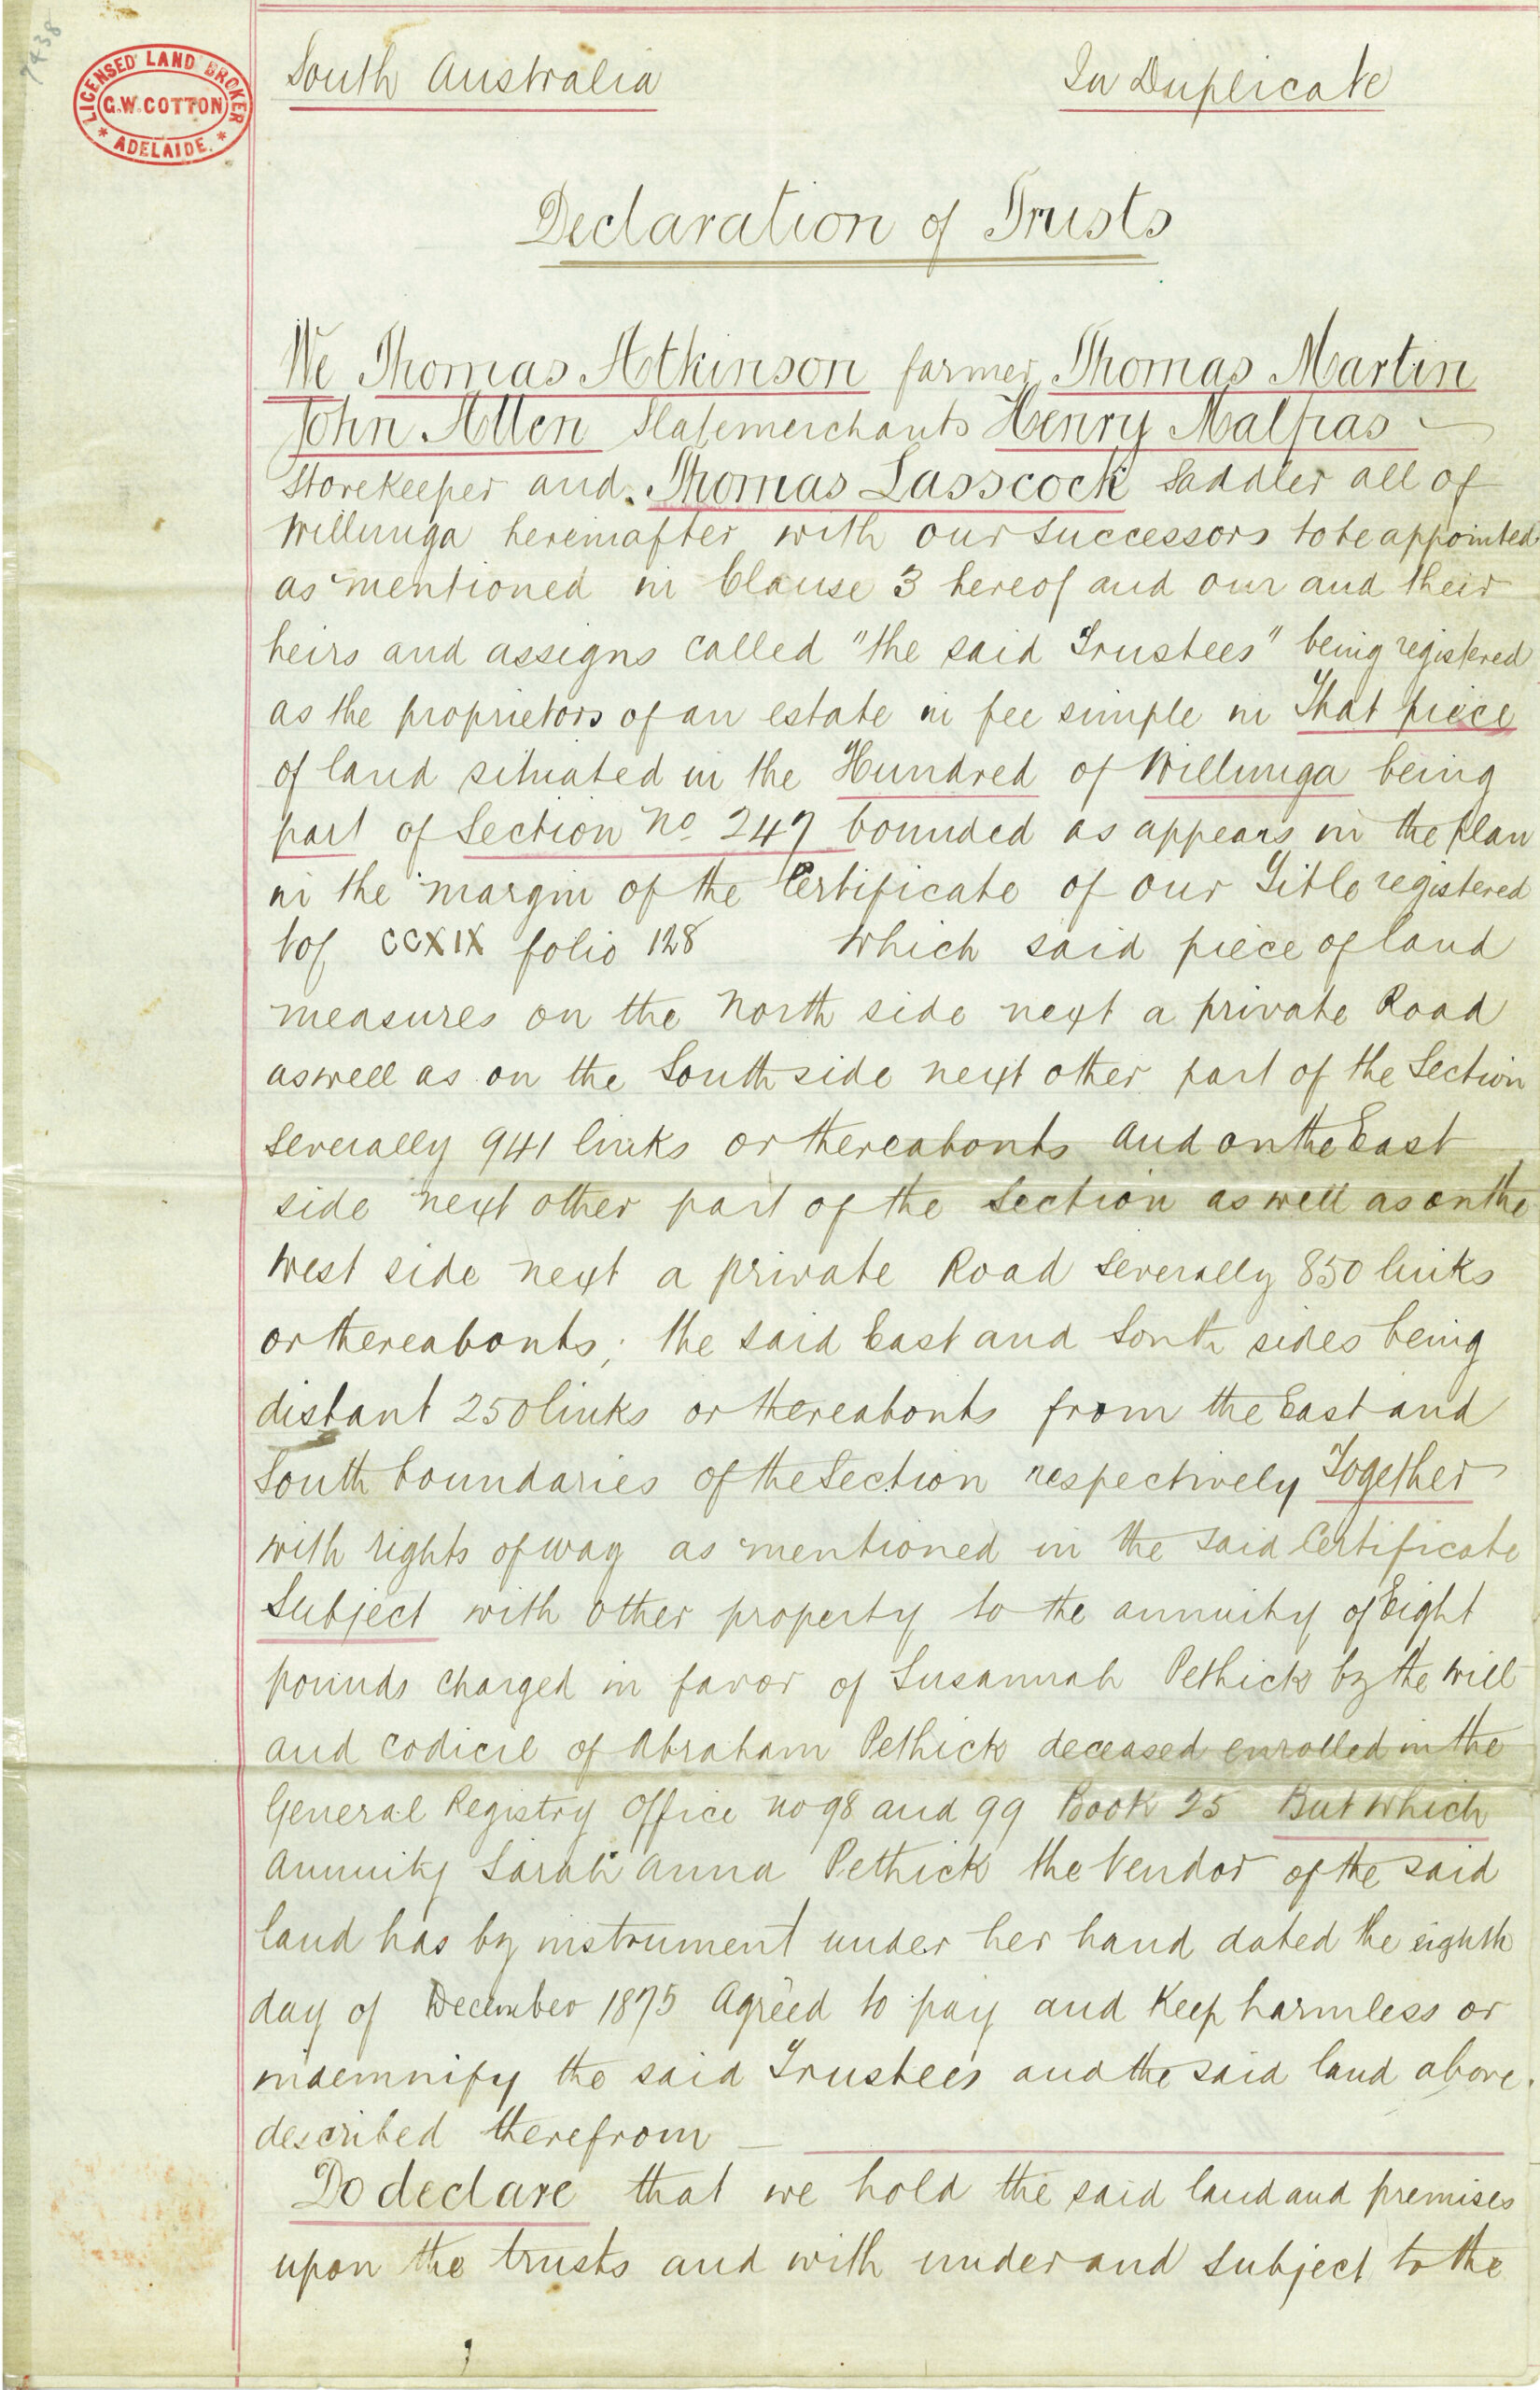 7438
LICENSED LAND BROKER
G.W. COTTON
* ADELAIDE. *
South Australia
In Duplicate
Declaration of Trusts
We Thomas Atkinson farmer Thomas Martin
John Allen Slatemerchants Henry Malpas
Storekeeper and Thomas Lasscock Saddler all of
Willunga hereinafter with our successors to be appointed
as mentioned in Clause 3 hereof and our and their
heirs and assigns called "the said Trustees" being registered
as the proprietors of an estate in fee simple in That piece
of land situated in the Hundred of Willunga being
part of Section No 247 bounded as appears in the plan
in the margin of the Certificate of our Title registered
Vol CCXIX folio 128 which said piece of land
measures on the North side next a private Road
aswell as on the South side next other part of the Section
severally 941 links or thereabouts and on the East
side next other part of the Section as well as on the
West side next a private Road severally 850 links
or thereabouts; the said East and South sides being
distant 250 links or thereabouts from the East and
South boundaries of the Section respectively Together
with rights of way as mentioned in the said Certificate
Subject with other property to the annuity of Eight
pounds charged in favor of Susannah Pethick by the will
and codicil of Abraham Pethick deceased enrolled in the
General Registry Office No 98 and 99 Book 25 But which
annuity Sarah Anna Pethick the Vendor of the said
land has by instrument under her hand dated the eighth
day of December 1875 Agreed to pay and Keep harmless or
indemnify the said Trustees and the said land above
described therefrom
Do declare that we hold the said land and premises
upon the trusts and with under and subject to the